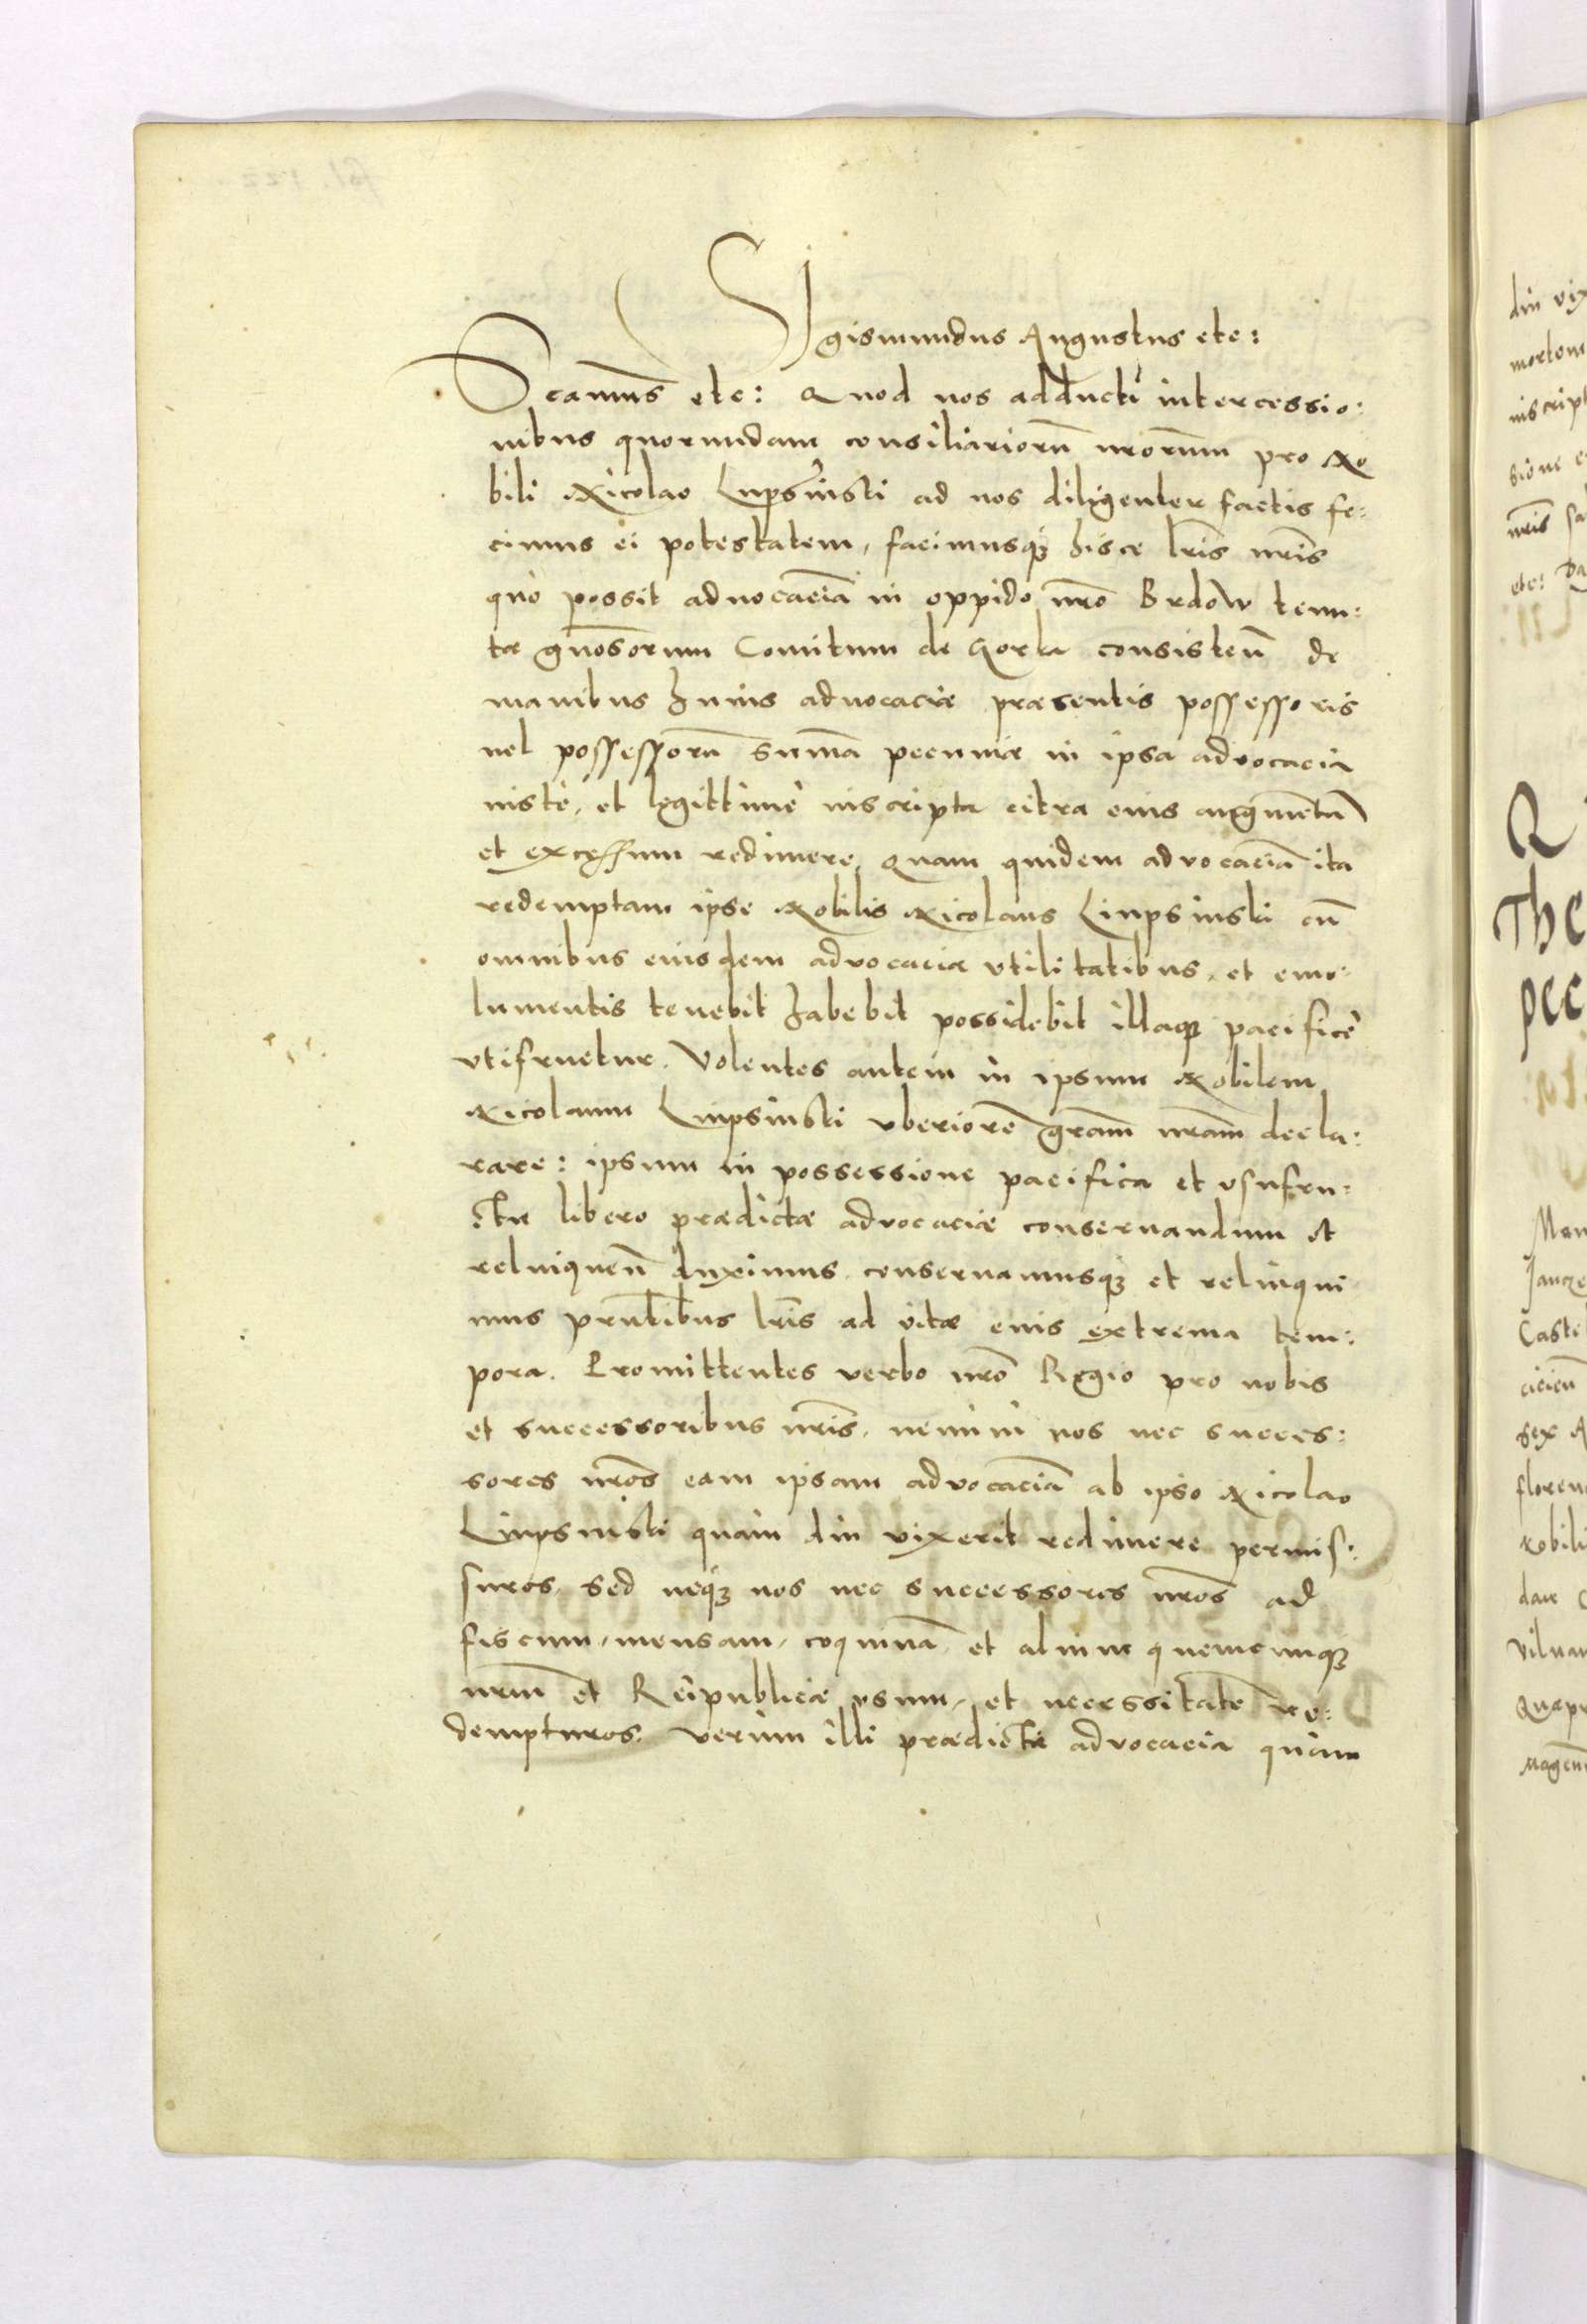 SIgismundus Augustus etc:
Scamus etc: Quod nos adducti intercessio:
nibus quorundam consiliarioru nrorum pro No
bili Nicolao Lupsinski ad nos diligenter factis fe:
cimus ei potestatem, facimusq hisce lris nris
quo possit aduocacia in oppido nro Brdow tenu:
tæ gnosorum Comitum de Gorka consisten de
manibus huius aduocaciæ præsentis possessoris
uel possessoru suma pecuniæ in ipsa advocacia
iuste, et legittime inscripta citra eius augmentu
et excessum redimere, Quam quidem advocacia ita
redemptam ipse Nobilis Nicolaus Liupsinski cu
omnibus eiusdem advocaciæ vtilitatibus, et emo:
lumentis tenebit habebit possidebit illaq pacifice
vtifruetur. Volentes autem in ipsum Nobilem
Nicolaum Liupsinski vberiore gram nram decla:
rare: ipsum in possessione pacifica et vsufru:
ctu libero prædictæ advocaciæ conseruandum et
relinquen duximus conseruamusq et relinqui
mus pntibus lris ad vitæ eius extrema tem:
pora. Promittentes verbo nro Regio pro nobis
et successoribus nris, nemini nos nec succes:
sores nros eam ipsam advocacia ab ipso Nicolao
Liupsinski quam diu vixerit redimere permis:
suros, sed neq nos nec successores nros ad
fiscum, mensam, coquina, et alium quemcunq
nrm et Reipublicæ vsum, et necessitate re:
dempturos. Verum illi prædicta advocacia quam